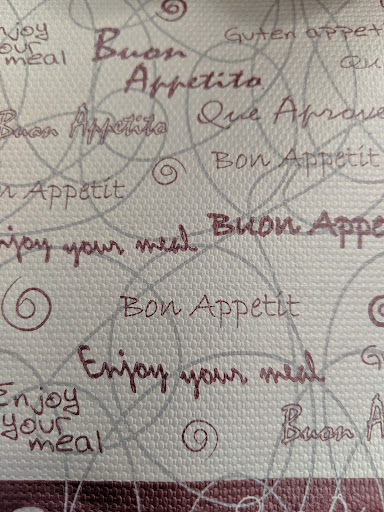 Enjoy
your
meal
Buon
Appetito
Guten appet
Qu
Buon Appetito
Que Aprove
Bon Appetit
n Appetit
njoy your meal
Buon Appe
Bon Appetit
Enjoy your meal
G
Enjoy
your
meal
Buon A